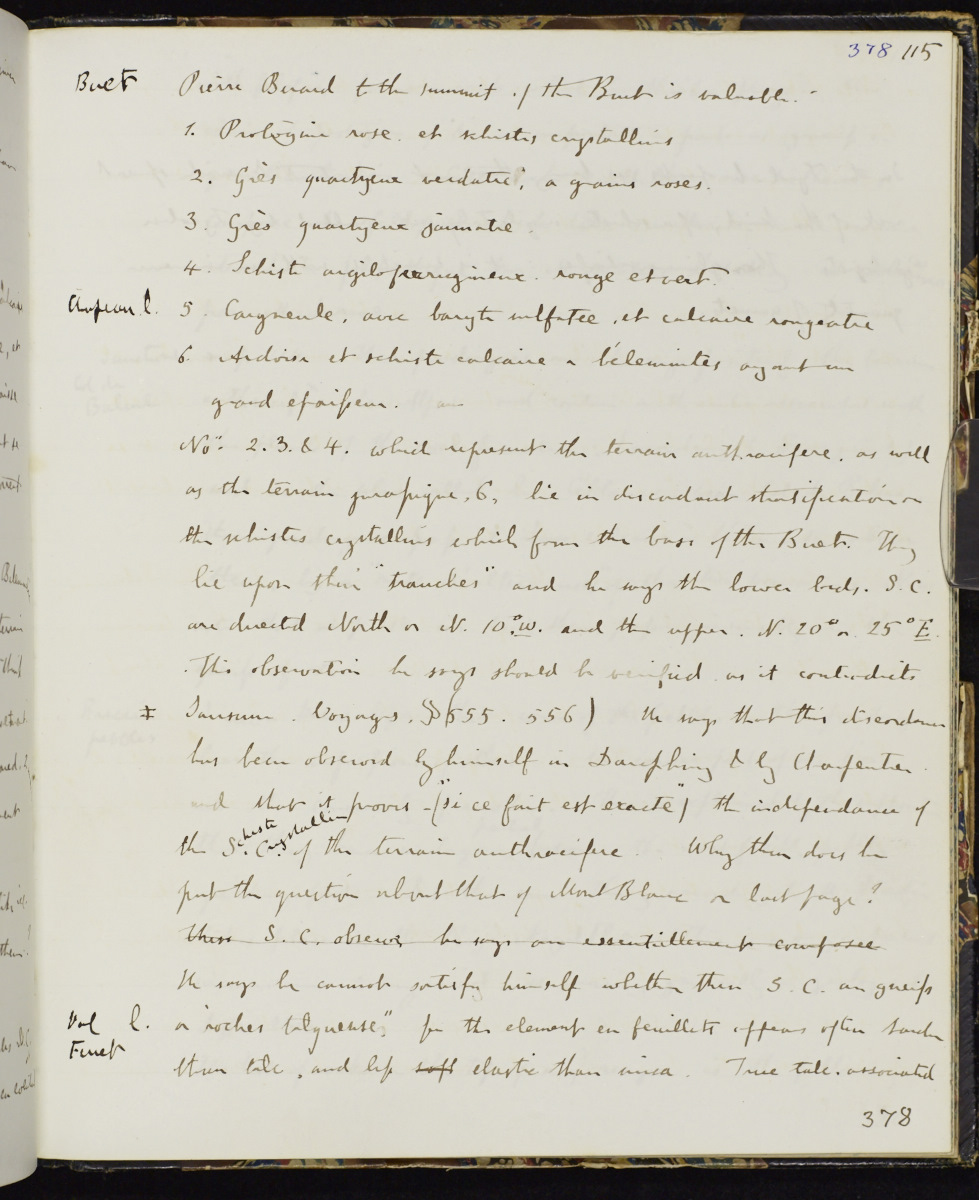 378 115
Buet Pierre Berard to the summit of the Buet is valuable. -
1. Protogine rose. et schistes crystallins
2. Grès quartzeux verdatre, a grains roses.
3. Grès quartzeux jaunatre.
4. Schiste argiloferrugineux. rouge et vert.
5. Cargneule, avec baryte sulfatée, et calcaire rougeatre
6. Ardoise et schiste calcaire a bélemnites ayant un
grand epaisseur.
Nos. 2. 3. & 4. which represent the terrain anthraxifere. as well
as the terrain jurassique, 6, lie in discordant stratification on
the schistes crystallins which form the base of the Buet. They
lie upon their "tranches" and he says the lower beds. S. C.
are directed North or N. 10° W. and the upper. N. 20° or 25° E.
This observation he says should be verified as it contradicts
‡ Saussure. Voyages. §§ (555. 556) He says that this discordance
has been observed by himself in Dauphiny & by Charpentier.
and that it proves - ("si ce fait est exacte") the independance of
the S. C. schiste crystallin of the terrain anthracifere. Why then does he
put the question about that of Mont Blanc on last page?
these S. C. observe he says are essentiellement composée
He says he cannot satisfy himself whether these S. C. are gneiss
Val l. or "roches talqueuse", for the element en feuillets appears often harder
Finet than talc, and less soft elastic than mica. True talc. associated
378